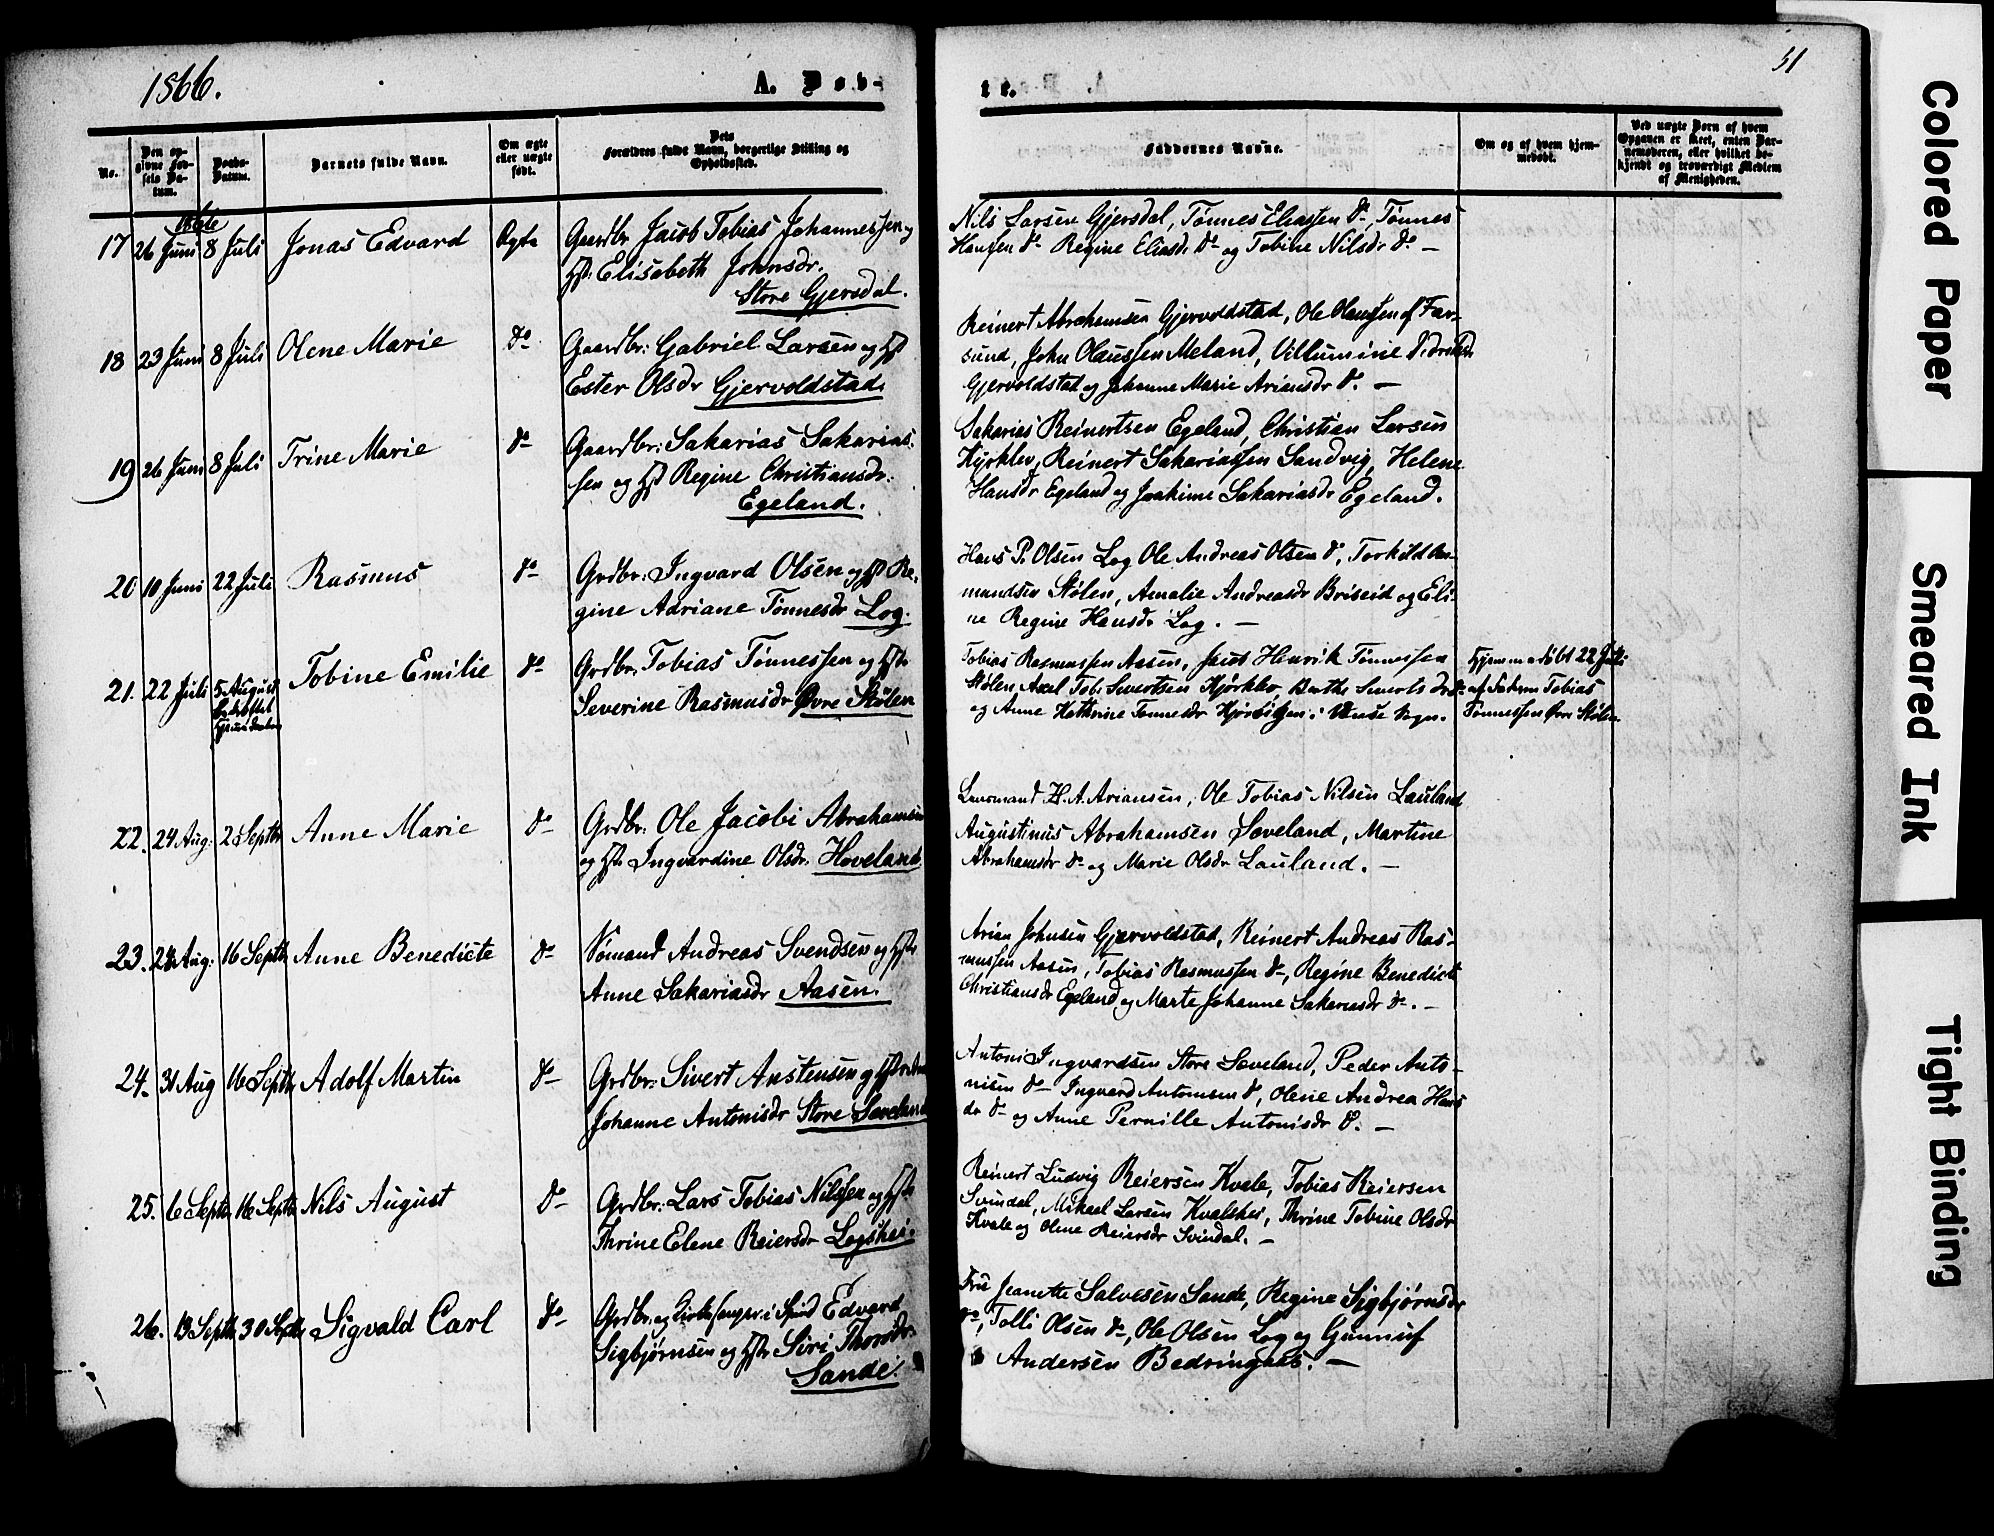 1866.
A. Døb-
te.
51
No.
Den op-
givne Fød-
sels Da-
tum.
Daabs-
Datum.
Barnets fulde Navn.
Om ægte
eller uægte
født.
Dets
Forældres fulde Navn, borgerlige Stilling og
Opholdssted.
Faddernes Navne.
Om og af hvem hjem-
medøbt.
Ved uægte Børn af hvem
Opgaven er skeet, enten Bar-
nemoderen, eller hvilket be-
kjendt og troværdigt Medlem
af Menigheden.
1866
17 26 Juni 8 Juli Jonas Edvard Ægte
Gaardbr. Jacob Tobias Johannessen og
Hst. Elisabeth Johnsdr.
Store Gjersdal.
Nils Larsen Gjersdal, Tønnes Eliassen do, Tønnes
Hansen do Regine Eliasdr do og Tobine Nilsdr do —
18 23 Juni 8 Juli Olene Marie do
Gaardbr: Gabriel Larsen og Hst
Ester Olsdr Gjervoldstad.
Reinert Abrahamsen Gjervoldstad, Ole Olaussen af Far-
sund, John Olaussen Meland, Villumine
Gjervoldstad og Johanne Marie Ariansdr do. —
19 26 Juni 8 Juli Trine Marie do
Gaardbr: Sakarias Sakarias-
sen og Hst Regine Christiansdr.
Egeland.
Sakarias Reinertsen Egeland, Christian Larsen
Kjørklev, Reinert Sakariassen Sandvig, Helene
Hansdr Egeland og Joakime Sakariasdr Egeland.
20 10 Juni 22 Juli Rasmus do
Grdbr: Ingvard Olsen og Hst Re-
gine Adriane Tønnesdr Log.
Hans P. Olsen Log Ole Andreas Olsen do, Torkild Aa-
mundsen Stølen, Amalie Andreasdr Briseid og Eli-
ne Regine Hansdr Log. —
21. 22 Juli 5 August Tobine Emilie do
Grdbr. Tobias Tønnessen og Hst.
Severine Rasmusdr Øvre Stølen
Tobias Rasmussen Aasen, Jacob Henrik Tønnessen
Stølen, Axel Tob. Sevortsen Kjørklev, Berthe Sevorts dr do
og Anne Kathrine Tønnesdr i Vanse Sogn.
Hjemmedøbt 22 Juli
af Faderen Tobias
Tønnessen Øvre Stølen
22. 24 Aug. 2 Septbr Anne Marie do
Grdbr: Ole Jacobi Abrahamsen
og Hst. Ingvardine Olsdr. Hoveland.
Lensmand H. A. Ariansen, Ole Tobias Nilsen Lauland
Augustinus Abrahamsen Loveland, Martine
Abrahamsdr do og Marie Olsdr Lauland. —
23. 28 Aug: 16 Septbr Anne Benedicte do
Sømand Andreas Svendsen og Hst.
Anne Sakariasdr Aasen.
Arian Johnsen Gjervoldstad, Reinert Andreas Ras-
mussen Aasen, Tobias Rasmussen do, Regine Benedicte
Christiansdr Egeland og Marte Johanne Sakariasdr do. —
24. 31 Aug 16 Septbr Adolf Martin do
Grdbr: Sivert Anstensen og Hstr
Johanne Antonisdr Store Loveland
Antoni Ingvardsen Store Loveland, Peder Anto-
nisen do Ingvard Antonisen do, Olene Andrea Hans
dr do og Anne Pernille Antonisdr do. —
25. 6 Septbr 16 Septbr Nils August do
Grdbr: Lars Tobias Nilssen og Hst.
Thrine Elene Reiersdr Logshei.
Reinert Ludvig Reiersen Kvale, Tobias Reiersen
Svindal, Mikael Larsen Kvalshei, Thrine Tobine Olsdr
Kvale og Olene Reiersdr Svindal. —
26. 13 Septbr 30 Septbr Sigvald Carl do
Grdbr. og Kirkesanger i Spind Edvard
Sigbjørnsen og Hst. Siri Thorsdr.
Sande.
Fru Jeanette Salvesen Sande, Regine Sigbjørnsdr
do, Tolli Olsen do, Ole Olsen Log og Gunnuf
Andersen Bedringaas. —
Colored Paper
Smeared Ink
Tight Binding